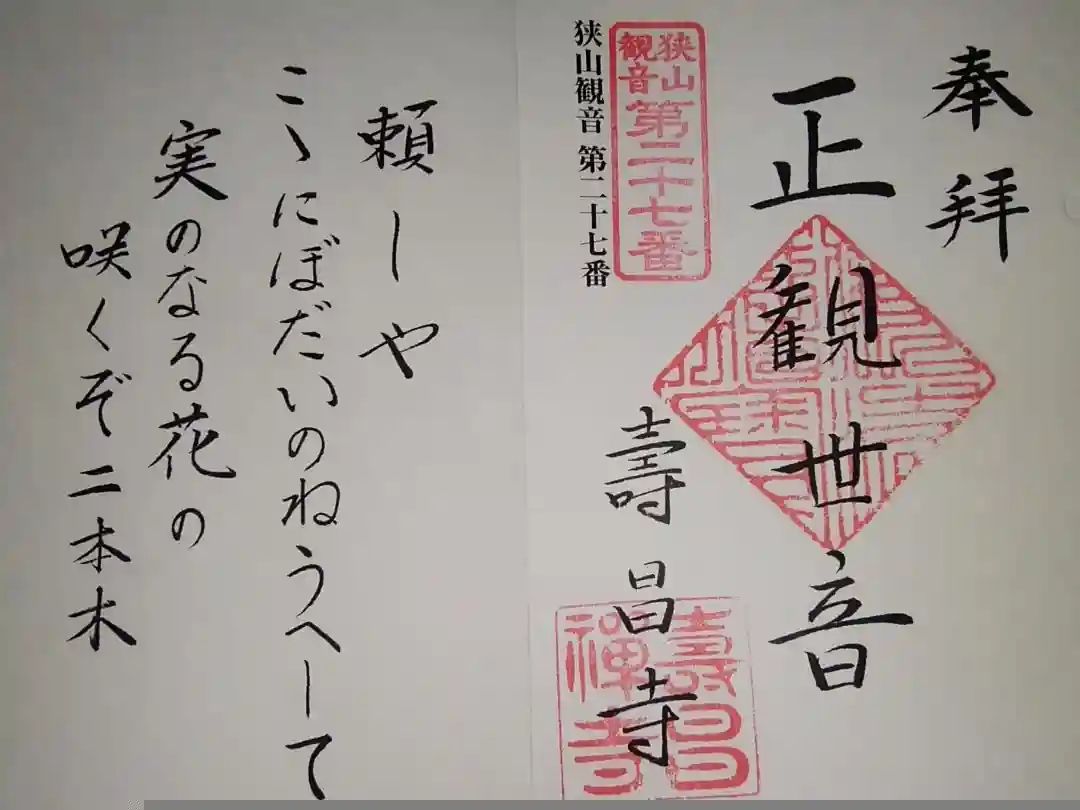 奉拝
正観世音
狭山観音
第二十七番
狭山観音 第二十七番
壽昌寺
壽昌禅寺
頼しや
こゝにぼだいのねうへーて
実のなる花の
咲くぞ二本木